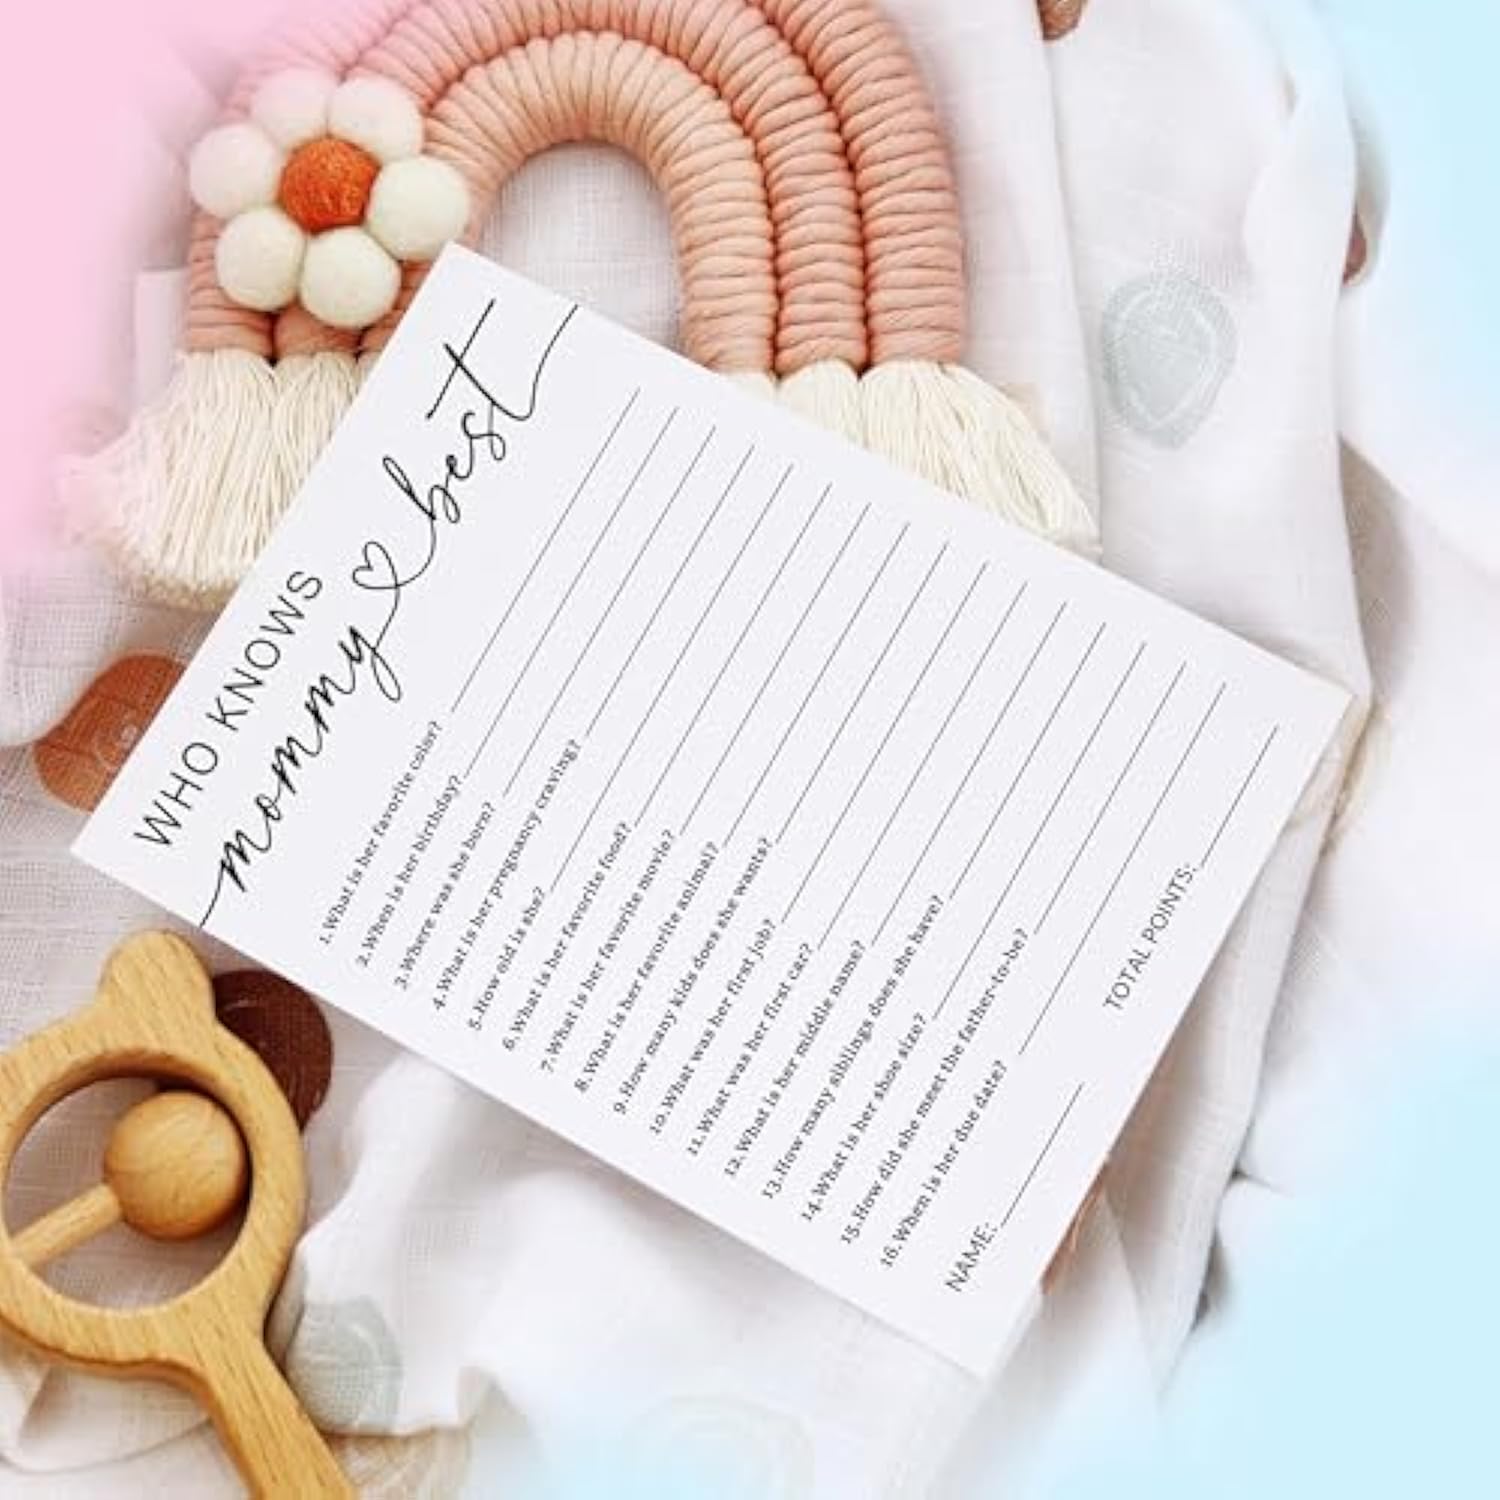 WHO KNOWS
mommy best
1.What is her favorite color?
2.When is her birthday?
3.Where was she born?
4.What is her pregnancy craving?
5.How old is she?
6.What is her favorite food?
7.What is her favorite movie?
8.What is her favorite animal?
9.How many kids does she wants?
10.What was her first job?
11.What was her first car?
12.What is her middle name?
13.How many siblings does she have?
14.What is her shoe size?
15.How did she meet the father-to-be?
16.When is her due date?
NAME: TOTAL POINTS: